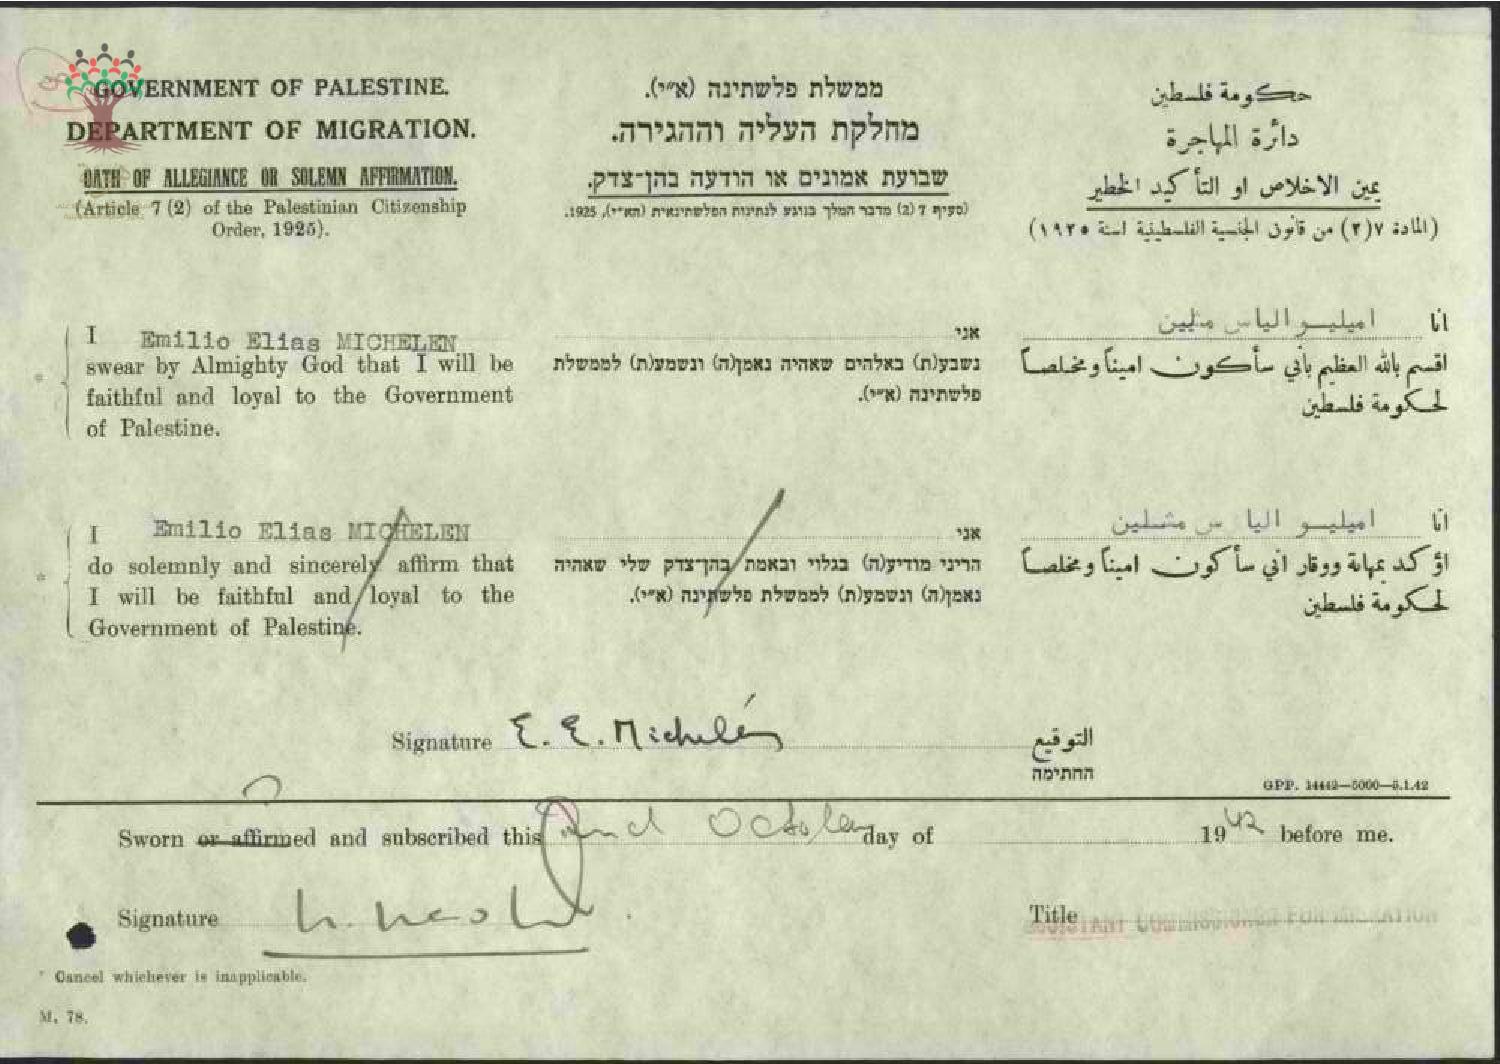 GOVERNMENT OF PALESTINE.
DEPARTMENT OF MIGRATION.
OATH OF ALLEGIANCE OR SOLEMN AFFIRMATION.
(Article 7 (2) of the Palestinian Citizenship
Order, 1925).
ממשלת פלשתינה (א״י).
מחלקת העליה וההגירה.
שבועת אמונים או הודעה בהן־צדק.
(סעיף 7 (2) מדבר המלך בנוגע לנתינות הפלשתינאית (הא״י), 1925.
حكومة فلسطين
دائرة المهاجرة
يمين الاخلاص او التأكيد الخطير
(المادة ٧(٢) من قانون الجنسية الفلسطينية لسنة ١٩٢٥)
I Emilio Elias MICHELEN
swear by Almighty God that I will be
faithful and loyal to the Government
of Palestine.
אני
נשבע(ת) באלהים שאהיה נאמן(ה) ונשמע(ת) לממשלת
פלשתינה (א״י).
انا اميليو الياس
اقسم بالله العظيم بأني سأكون اميناً ومخلصاً
لحكومة فلسطين
I Emilio Elias MICHELEN
do solemnly and sincerely affirm that
I will be faithful and loyal to the
Government of Palestine.
אני
הריני מודיע(ה) בגלוי ובאמת בהן־צדק שלי שאהיה
נאמן(ה) ונשמע(ת) לממשלת פלשתינה (א״י).
انا اميليو الياس مشلين
اؤكد بمهابة ووقار اني سأكون اميناً ومخلصاً
لحكومة فلسطين
Signature E. E. Michelén التوقيع
החתימה
GPP. 14442—5000—5.1.42
Sworn or affirmed and subscribed this 2nd October day of 1942 before me.
Signature
Title ASSISTANT COMMISSIONER FOR MIGRATION
* Cancel whichever is inapplicable.
M. 78.